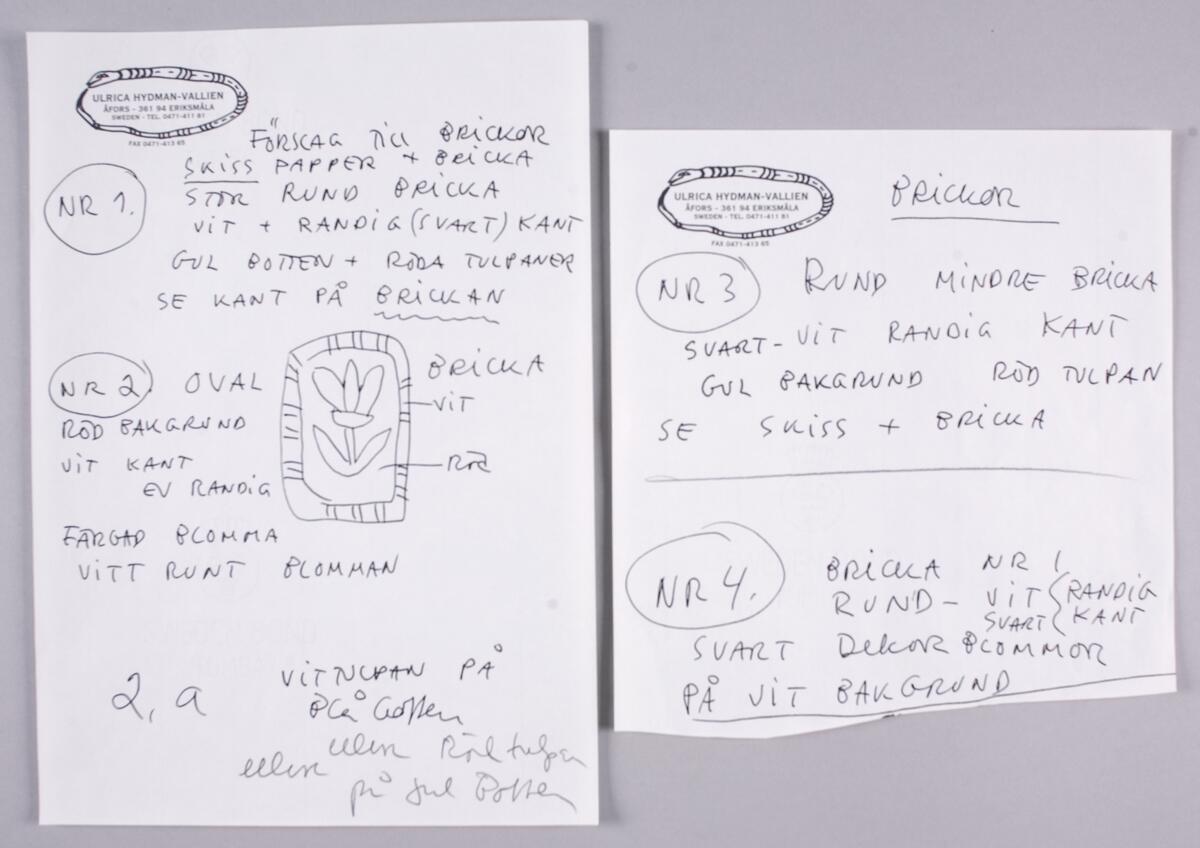 ULRICA HYDMAN-VALLIEN
ÅFORS - 361 94 ERIKSMÅLA
SWEDEN - TEL. 0471-411 81
FAX 0471-413 65
FÖRSLAG TILL BRICKOR
SKISS PAPPER + BRICKA
NR 1. STOR RUND BRICKA
VIT + RANDIG (SVART) KANT
GUL BOTTEN + RÖDA TULPANER
SE KANT PÅ BRICKAN
NR 2. OVAL
BRICKA
VIT
RÖD
RÖD BAKGRUND
VIT KANT
EV RANDIG
FÄRGAD BLOMMA
VITT RUNT BLOMMAN
2, a VIT TULPAN PÅ
BLÅ Botten
eller eller Röd tulpan
på gul Botten
ULRICA HYDMAN-VALLIEN
ÅFORS - 361 94 ERIKSMÅLA
SWEDEN - TEL. 0471-411 81
FAX 0471-413 65
BRICKOR
NR 3 RUND MINDRE BRICKA
SVART-VIT RANDIG KANT
GUL BAKGRUND RÖD TULPAN
SE SKISS + BRICKA
NR 4. BRICKA NR 1
RUND - VIT RANDIG
SVART KANT
SVART DEKOR BLOMMOR
PÅ VIT BAKGRUND